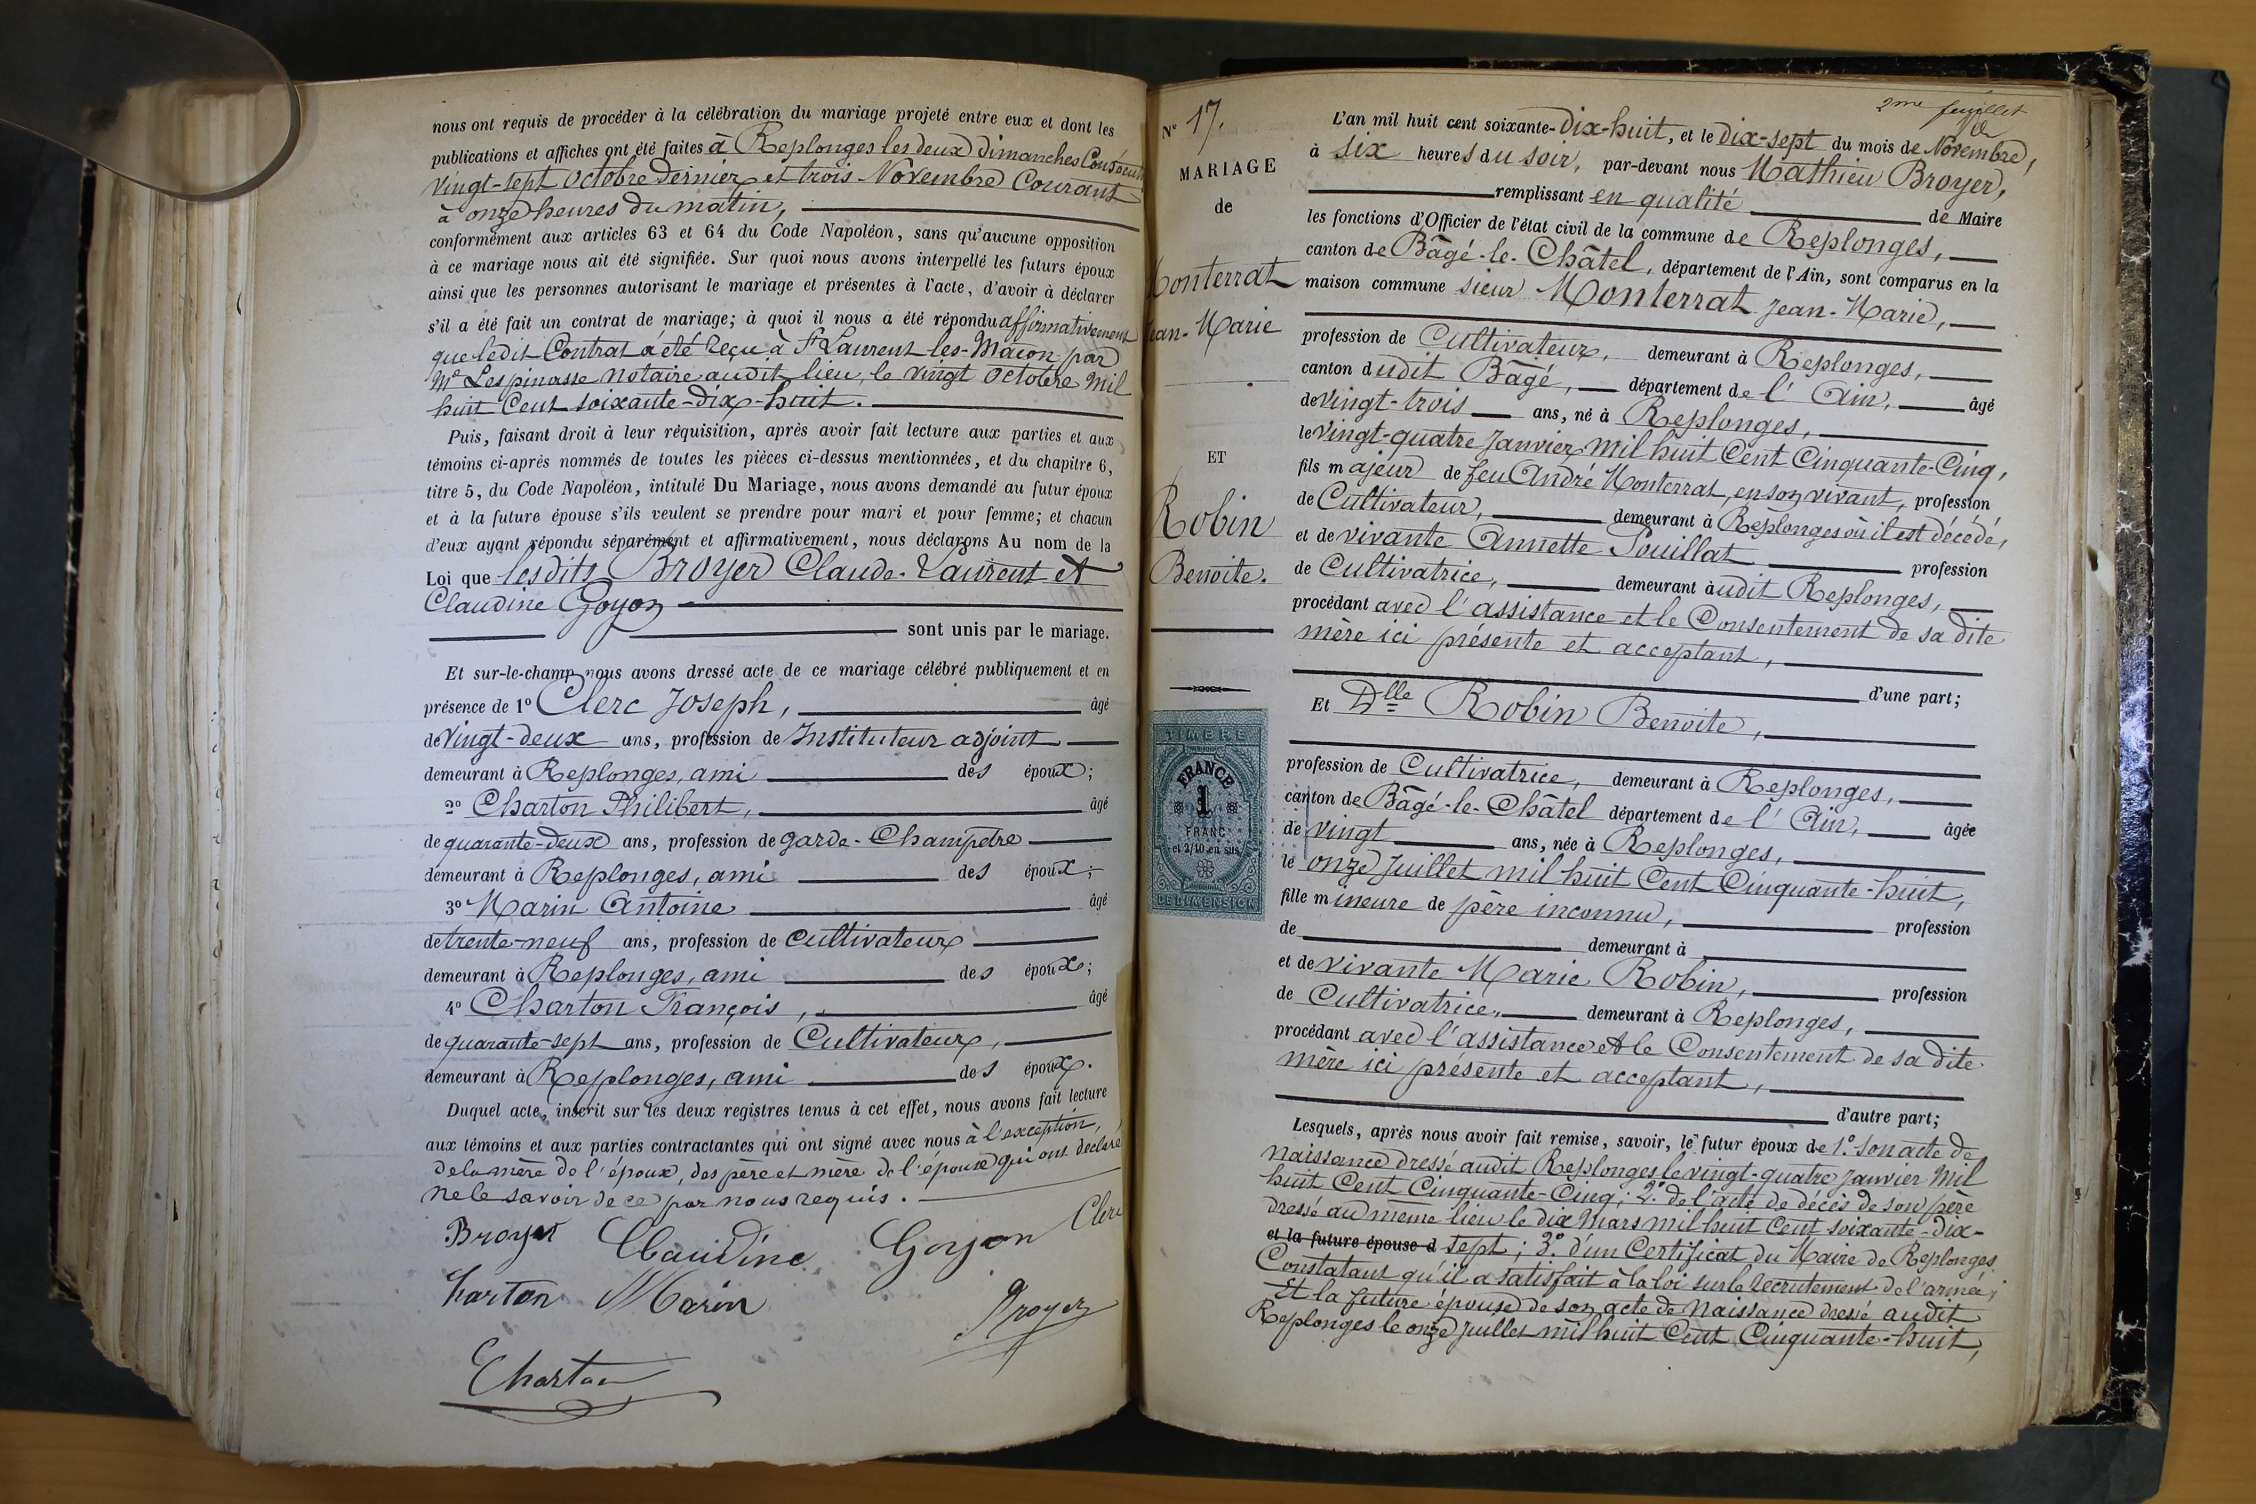 nous ont requis de procéder à la célébration du mariage projeté entre eux et dont les
publications et affiches ont été faites à Replonges les deux dimanches
vingt-sept Octobre dernier et trois Novembre Courant
à onze heures du matin,
conformément aux articles 63 et 64 du Code Napoléon, sans qu'aucune opposition
à ce mariage nous ait été signifiée. Sur quoi nous avons interpellé les futurs époux
ainsi que les personnes autorisant le mariage et présentes à l'acte, d'avoir à déclarer
s'il a été fait un contrat de mariage; à quoi il nous a été répondu affirmativement
que ledit Contrat a été reçu à St Laurent-les-Macon par
Me Lespinasse notaire audit lieu, le vingt Octobre mil
huit Cent soixante-dix-huit.
Puis, faisant droit à leur réquisition, après avoir fait lecture aux parties et aux
témoins ci-après nommés de toutes les pièces ci-dessus mentionnées, et du chapitre 6,
titre 5, du Code Napoléon, intitulé Du Mariage, nous avons demandé au futur époux
et à la future épouse s'ils veulent se prendre pour mari et pour femme; et chacun
d'eux ayant répondu séparément et affirmativement, nous déclarons Au nom de la
Loi que lesdits Broyer Claude-Laurent et
Claudine Goyon
sont unis par le mariage.
Et sur-le-champ nous avons dressé acte de ce mariage célébré publiquement et en
présence de 1° Clerc Joseph, âgé
de vingt-deux ans, profession de Instituteur adjoint
demeurant à Replonges, ami des époux;
2° Charton Philibert, âgé
de quarante-deux ans, profession de garde-Champêtre
demeurant à Replonges, ami des époux;
3° Marin Antoine âgé
de trente-neuf ans, profession de cultivateur
demeurant à Replonges, ami des époux;
4° Charton François, âgé
de quarante-sept ans, profession de Cultivateur,
demeurant à Replonges, ami des époux.
Duquel acte, inscrit sur les deux registres tenus à cet effet, nous avons fait lecture
aux témoins et aux parties contractantes qui ont signé avec nous à l'exception,
de la mère de l'époux, des père et mère de l'épouse qui ont déclaré
ne le savoir de ce par nous requis.
Broyer Claudine Goyon Clerc
Charton Marin
Broyer
Charton
2me feuillet
N° 17.
MARIAGE
de
Monterrat
Jean-Marie
ET
Robin
Benoite.
TIMBRE
FRANCE
1
FRANC
et 2/10 en sus
DE DIMENSION
L'an mil huit cent soixante-dix-huit, et le dix-sept du mois de Novembre,
à six heures du soir, par-devant nous Mathieu Broyer,
remplissant en qualité de Maire
les fonctions d'Officier de l'état civil de la commune de Replonges,
canton de Bâgé-le-Châtel, département de l'Ain, sont comparus en la
maison commune sieur Monterrat Jean-Marie,
profession de Cultivateur, demeurant à Replonges,
canton dudit Bâgé, département de l'Ain, âgé
de vingt-trois ans, né à Replonges,
le vingt-quatre Janvier mil huit Cent Cinquante-Cinq,
fils majeur de feu André Monterrat, en son vivant, profession
de Cultivateur, demeurant à Replonges où il est décédé,
et de vivante Annette Pouillat profession
de Cultivatrice, demeurant audit Replonges,
procédant avec l'assistance et le Consentement de sa dite
mère ici présente et acceptant,
d'une part;
Et Dlle Robin Benoite,
profession de Cultivatrice, demeurant à Replonges,
canton de Bâgé-le-Châtel département de l'Ain, âgée
de vingt ans, née à Replonges,
le onze Juillet mil huit Cent Cinquante-huit,
fille mineure de père inconnu, profession
de demeurant à
et de vivante Marie Robin, profession
de Cultivatrice, demeurant à Replonges,
procédant avec l'assistance et le Consentement de sa dite
mère ici présente et acceptant,
d'autre part;
Lesquels, après nous avoir fait remise, savoir, le futur époux de 1°. son acte de
naissance dressé audit Replonges le vingt-quatre Janvier mil
huit Cent Cinquante-Cinq; 2°. de l'acte de décès de son père
dressé au même lieu le dix Mars mil huit Cent soixante-dix-
et la future épouse d sept; 3°. d'un Certificat du Maire de Replonges
Constatant qu'il a satisfait à la loi sur le recrutement de l'armée;
Et la future épouse de son acte de Naissance dressé audit
Replonges le onze Juillet mil huit Cent Cinquante-huit,